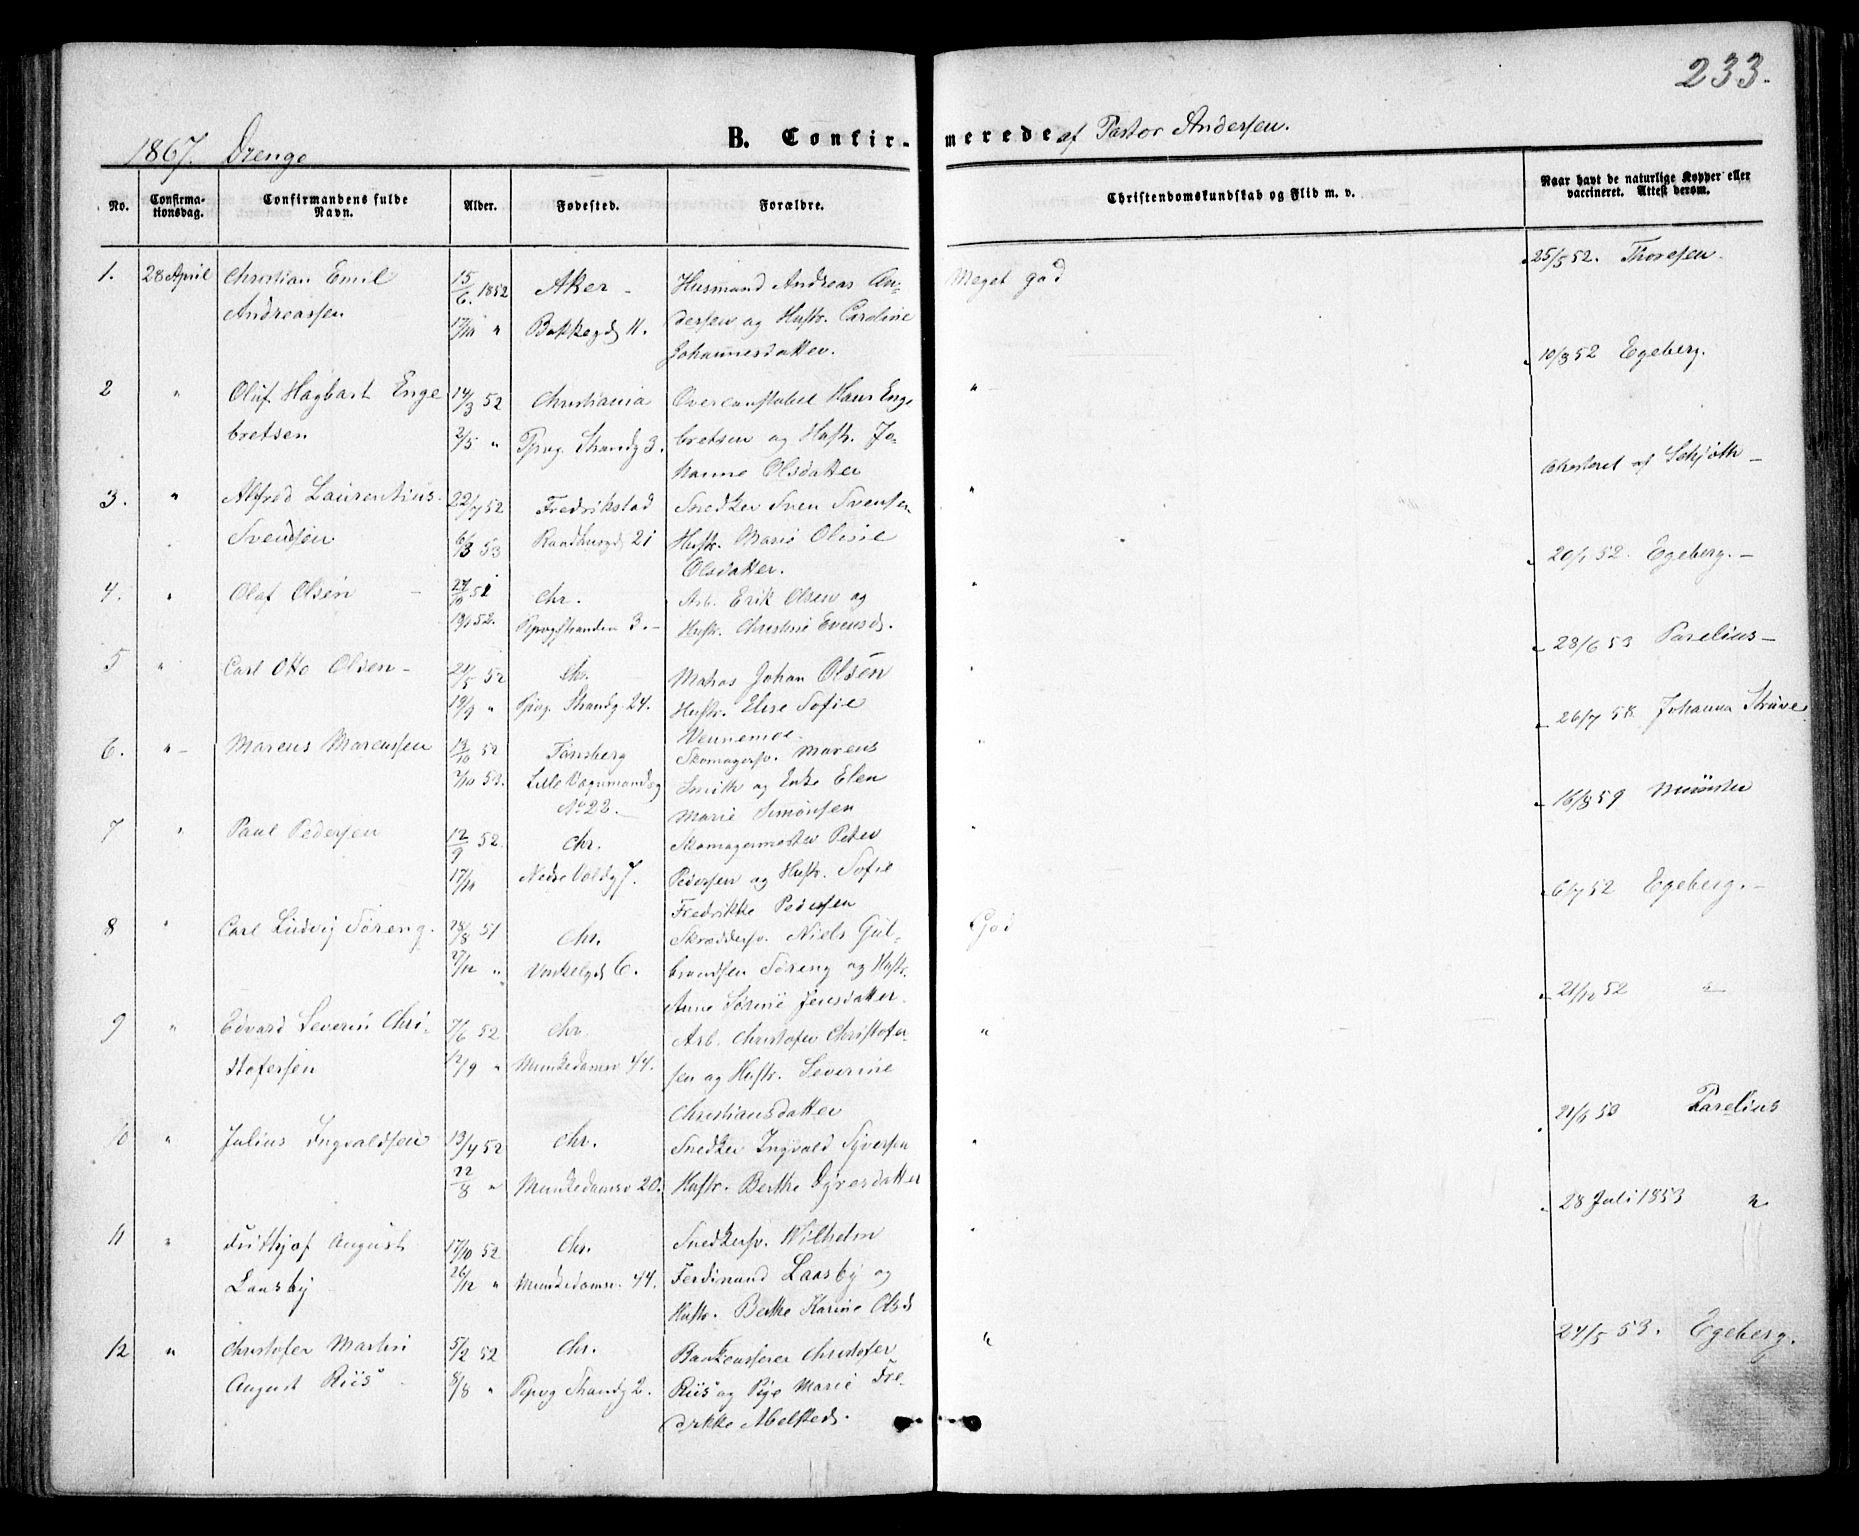 233.
1867. Drenge
B. Confirmerede af Pastor Andersen.
No.
Confirma-
tionsdag.
Confirmandens fulde
Navn.
Alder.
Fødested.
Forældre.
Christendomskundskab og Flid m. v.
Naar havt de naturlige Kopper eller
vaccineret. Attest derom.
1. 28 April Christian Emil 15/6 1852 Aker - Husmand Andreas An- Meget god 25/5 52. Thoresen
Andreassen 17/10 " Bakkegd 11. dersen og Hustr. Caroline
Johannesdatter. 10/8 52 Egeberg.
2 " Oluf Hagbart Enge 14/3 52 Christiania Overconstabel Hans Enge "
bretsen 2/5 " Tjuvg. Strandg 3. bretsen og Hustr. Jo-
hanne Olsdatter Attesteret af Schjøth -
3. " Alfred Laurentius 22/7 52 Fredrikstad Snedker Sven Svensen "
Svendsen 6/3 53 21 Hustr. Marie Oline
Olsdatter. 20/1 52. Egeberg. -
4. " Olaf Olsen 51 Chr. Arb. Erik Olsen og "
52. 3. - Hustr. Christine Evensd.
28/6 53 Parelius -
5 " Carl Otto Olsen - 21/5 52 Chr. Matros Johan Olsen
19/9 " Strandg. 24. Hustr. Elise Sofie
Wennemoe. 26/7 58 Johanna Strüve
6. " - Marcus Marcussen 13/10 52 Tønsberg Skomagersv. Marcus "
2/10 53. Lille Vognmandsg Smith og Enke Elen
No 22. Marie Simonsen 16/8 59 Münster
7 " Paul Pedersen 12/9 52. Chr. Skomagermester Peder "
17/10 Nedre Voldg 7. Pedersen og Hustr. Sofie
Fredrikke Pedersen 6/7 52 Egeberg. -
8 " Carl Ludvig Søreng. 28/8 51 Chr. Skræddersv. Niels Gul- God
27/12 " Vinkelgd 6. brandsen Søreng og Hustr.
Anne Sørine Jensdatter. 21/12 52 "
9 " Edvard Severin Chri- 7/6 52 Chr. Arb. Christofer Christofer- "
stofersen 12/9 " Munkedamsv 44. sen og Hustr. Severine
Christiansdatter 21/6 53 Parelius
10 " Julius Ingvaldsen 13/4 52 Chr. Snedker Ingvald Syversen "
22/8 " Munkedamsv 20. Hustr. Berthe Dyresdatter
28 Juli 1853 "
11 " Frithjof August 17/10 52 Chr. Snedkersv. Wilhelm "
Laasby 26/12 " Munkedamsv. 44. Ferdinand Laasby og
Hustr. Berthe Karine Olsd
24/5 53. Egeberg.
12 " Christofer Martin 5/2 52 Chr. Bankcasserer Christofer "
August Riis 8/8 " Pipvg Strandg 2. Riis og Pige Marie Fre-
drikke Abelsteds.